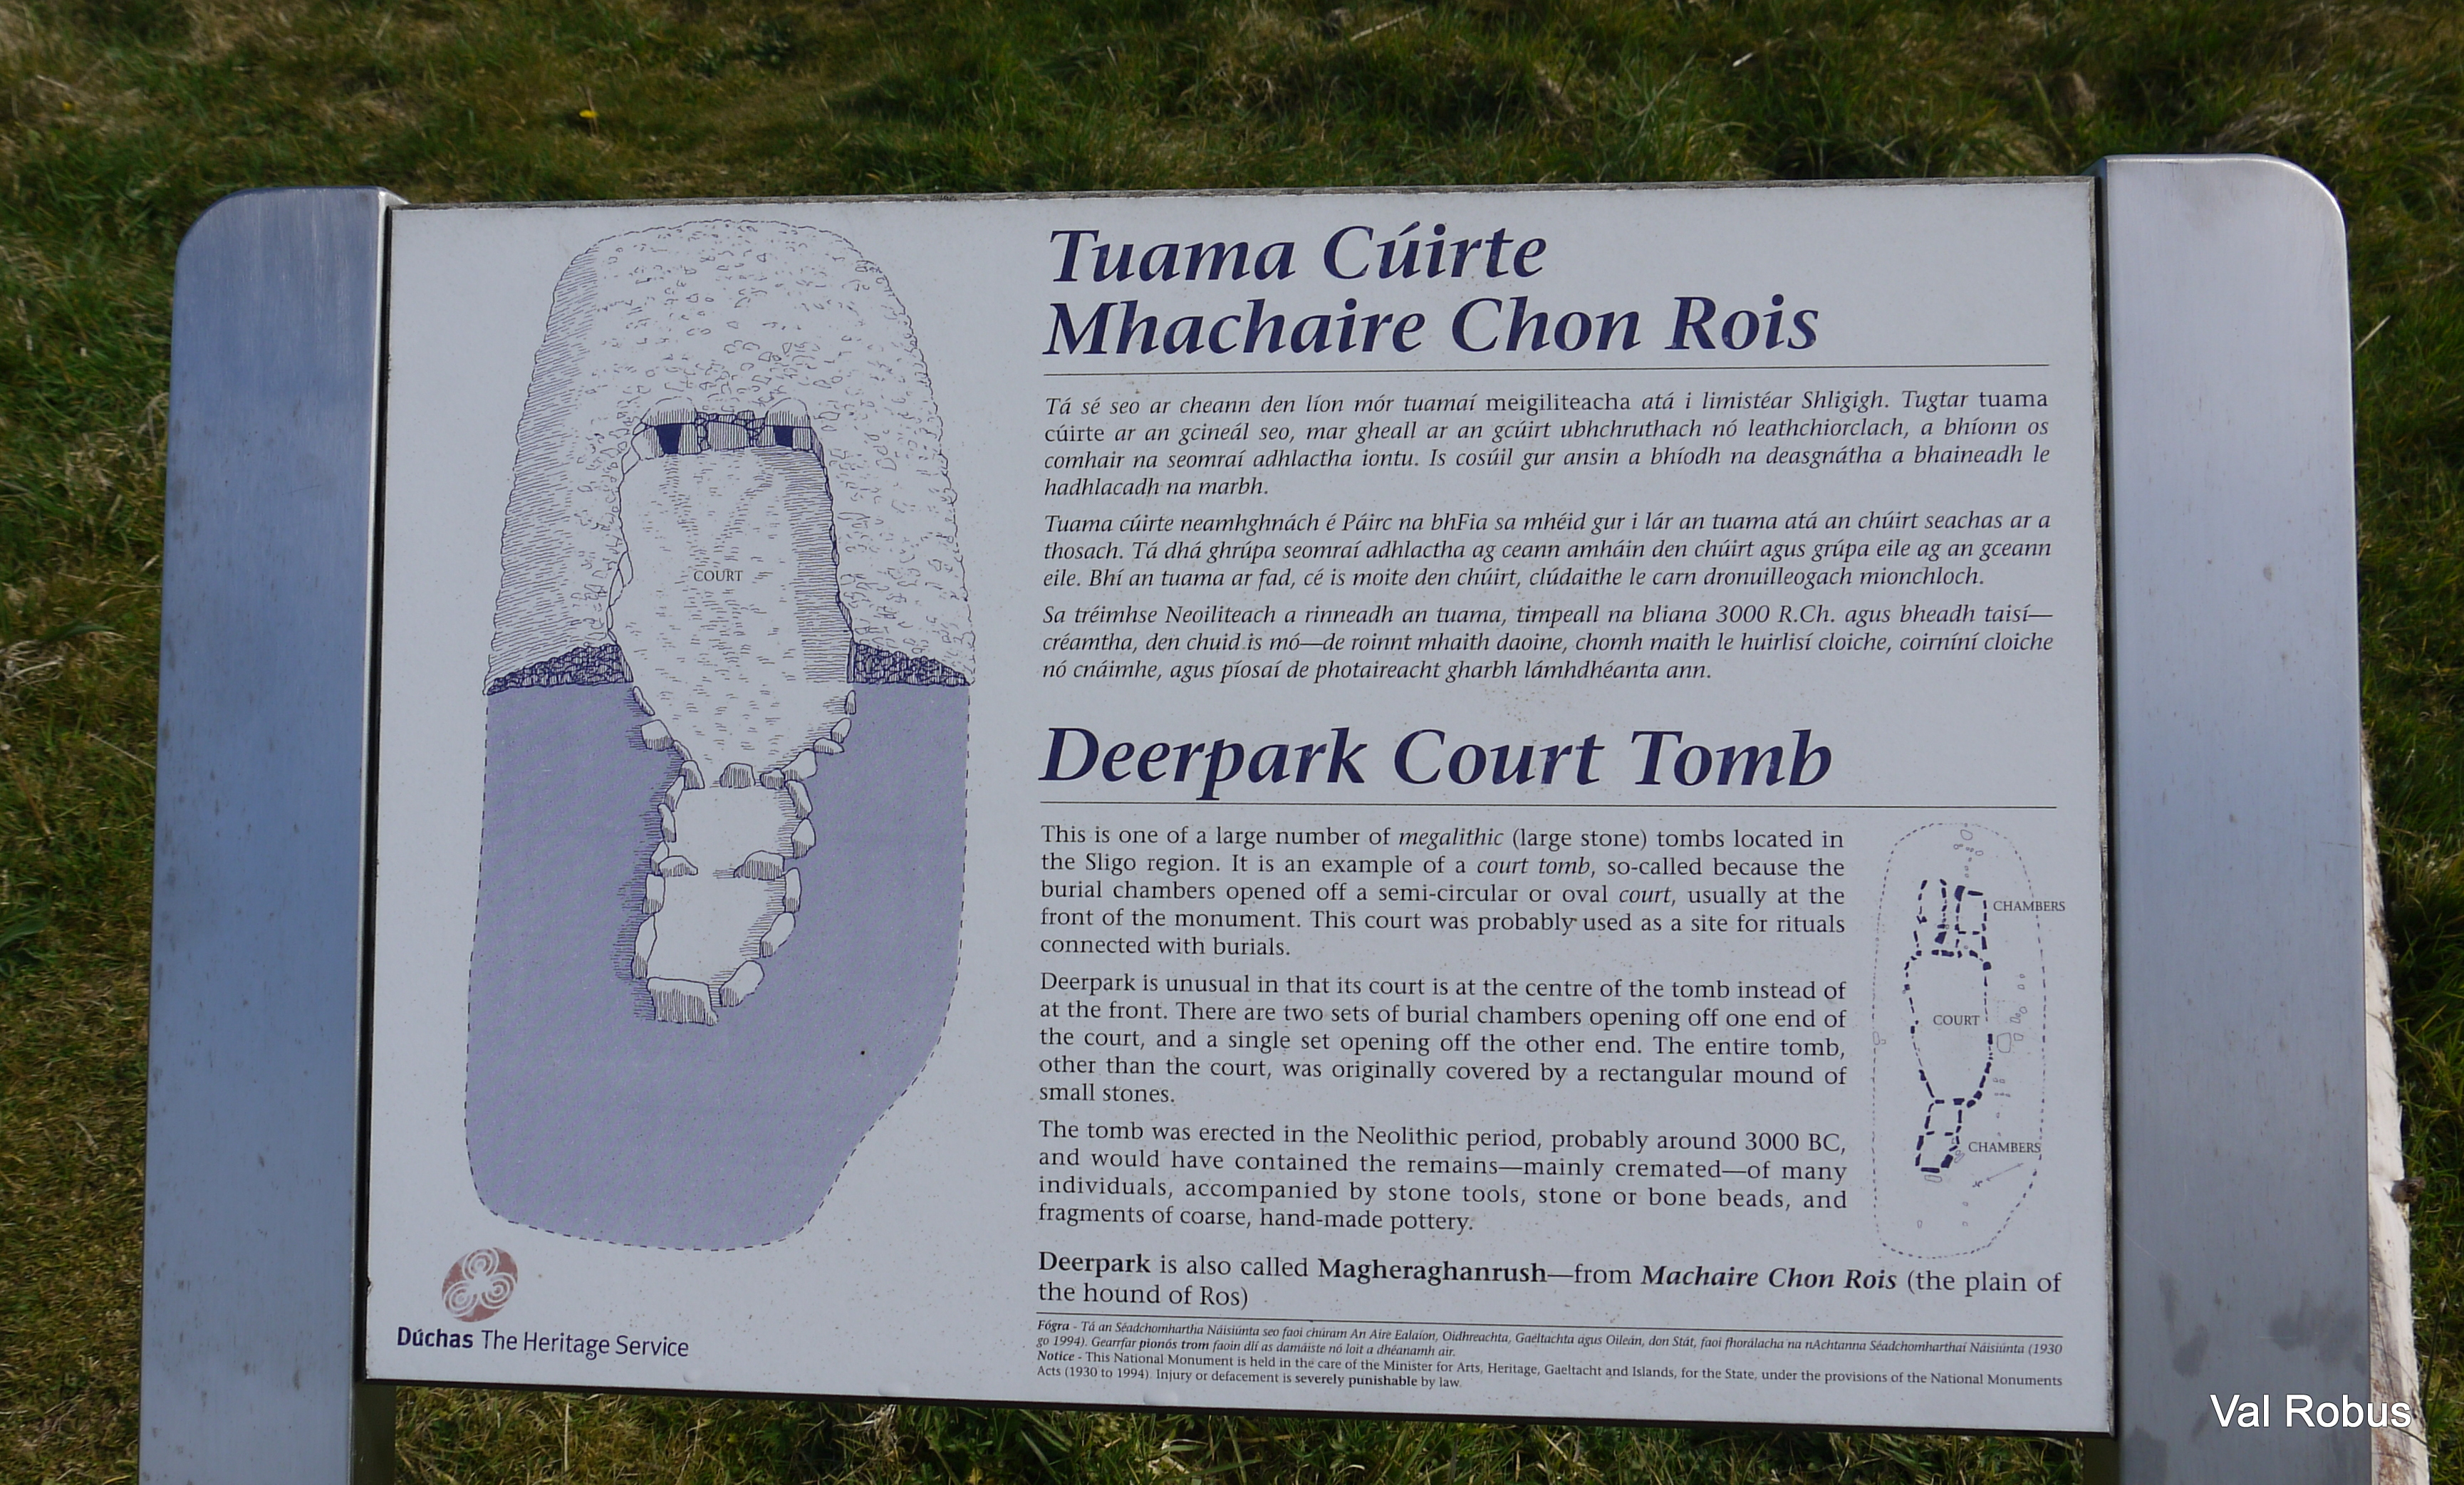 Tuama Cúirte
Mhachaire Chon Rois
Tá sé seo ar cheann den líon mór tuamaí meigiliteacha atá i limistéar Shligigh. Tugtar tuama
cúirte ar an gcineál seo, mar gheall ar an gcúirt ubhchruthach nó leathchiorclach, a bhíonn os
comhair na seomraí adhlactha iontu. Is cosúil gur ansin a bhíodh na deasgnátha a bhaineadh le
hadhlacadh na marbh.
Tuama cúirte neamhghnách é Páirc na bhFia sa mhéid gur i lár an tuama atá an chúirt seachas ar a
thosach. Tá dhá ghrúpa seomraí adhlactha ag ceann amháin den chúirt agus grúpa eile ag an gceann
eile. Bhí an tuama ar fad, cé is moite den chúirt, clúdaithe le carn dronuilleogach mionchloch.
Sa tréimhse Neoiliteach a rinneadh an tuama, timpeall na bliana 3000 R.Ch. agus bheadh taisí—
créamtha, den chuid is mó—de roinnt mhaith daoine, chomh maith le huirlisí cloiche, coirníní cloiche
nó cnáimhe, agus píosaí de photaireacht gharbh lámhdhéanta ann.
COURT
Deerpark Court Tomb
This is one of a large number of megalithic (large stone) tombs located in
the Sligo region. It is an example of a court tomb, so-called because the
burial chambers opened off a semi-circular or oval court, usually at the
front of the monument. This court was probably used as a site for rituals
connected with burials.
Deerpark is unusual in that its court is at the centre of the tomb instead of
at the front. There are two sets of burial chambers opening off one end of
the court, and a single set opening off the other end. The entire tomb,
other than the court, was originally covered by a rectangular mound of
small stones.
The tomb was erected in the Neolithic period, probably around 3000 BC,
and would have contained the remains—mainly cremated—of many
individuals, accompanied by stone tools, stone or bone beads, and
fragments of coarse, hand-made pottery.
CHAMBERS
COURT
CHAMBERS
Deerpark is also called Magheraghanrush—from Machaire Chon Rois (the plain of
the hound of Ros)
Fógra - Tá an Séadchomhartha Náisiúnta seo faoi chúram An Aire Ealaíon, Oidhreachta, Gaeltachta agus Oileán, don Stát, faoi fhorálacha na nAchtanna Séadchomharthaí Náisiúnta (1930
go 1994). Gearrfar pionós trom faoin dlí as damáiste nó loit a dhéanamh air.
Notice - This National Monument is held in the care of the Minister for Arts, Heritage, Gaeltacht and Islands, for the State, under the provisions of the National Monuments
Acts (1930 to 1994). Injury or defacement is severely punishable by law.
Dúchas The Heritage Service
Val Robus